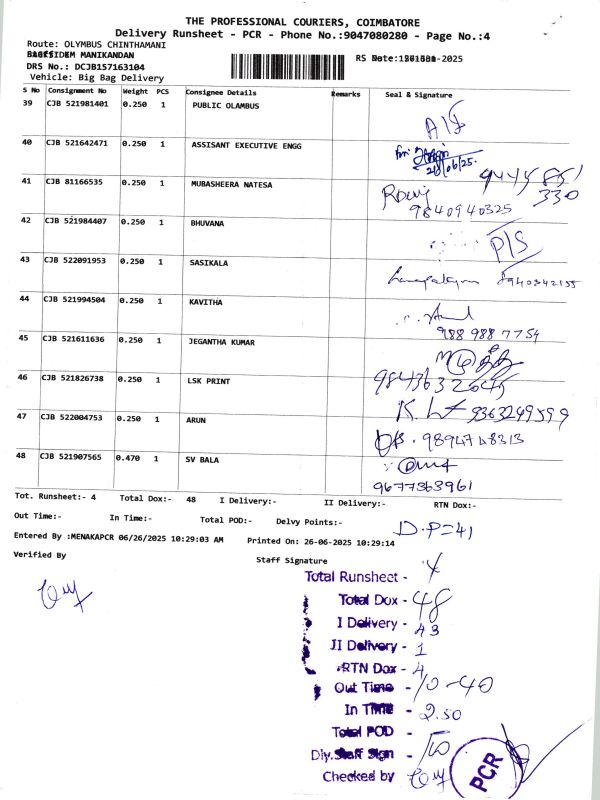 THE PROFESSIONAL COURIERS, COIMBATORE
Delivery Runsheet - PCR - Phone No.:9047080280 - Page No.:4
Route: OLYMBUS CHINTHAMANI
MANIKANDAN
RS No -2025
DRS No.: DCJB157163104
Vehicle: Big Bag Delivery
S No Consignment No Weight PCS Consignee Details Remarks Seal & Signature
39 CJB 521981401 0.250 1 PUBLIC OLAMBUS
40 CJB 521642471 0.250 1 ASSISANT EXECUTIVE ENGG
26/06/25.
41 CJB 81166535 0.250 1 MUBASHEERA NATESA
330
9840940325
42 CJB 521984407 0.250 1 BHUVANA P/S
43 CJB 522091953 0.250 1 SASIKALA 8940342155
44 CJB 521994504 0.250 1 KAVITHA
988 988 7754
45 CJB 521611636 0.250 1 JEGANTHA KUMAR
46 CJB 521826738 0.250 1 LSK PRINT 9843632645
47 CJB 522004753 0.250 1 ARUN 9363249599
9894748313
48 CJB 521907565 0.470 1 SV BALA
9677363961
Tot. Runsheet:- 4 Total Dox:- 48 I Delivery:- II Delivery:- RTN Dox:-
Out Time:- In Time:- Total POD:- Delvy Points:- D.P=41
Entered By :MENAKAPCR 06/26/2025 10:29:03 AM Printed On: 26-06-2025 10:29:14
Verified By Staff Signature
Total Runsheet - 4
Total Dox - 48
I Delivery - 43
II Delivery - 1
RTN Dox - 4
Out Time - 10-40
In Time - 2.50
Total POD -
Dly.Staff Sign -
Checked by
PCR